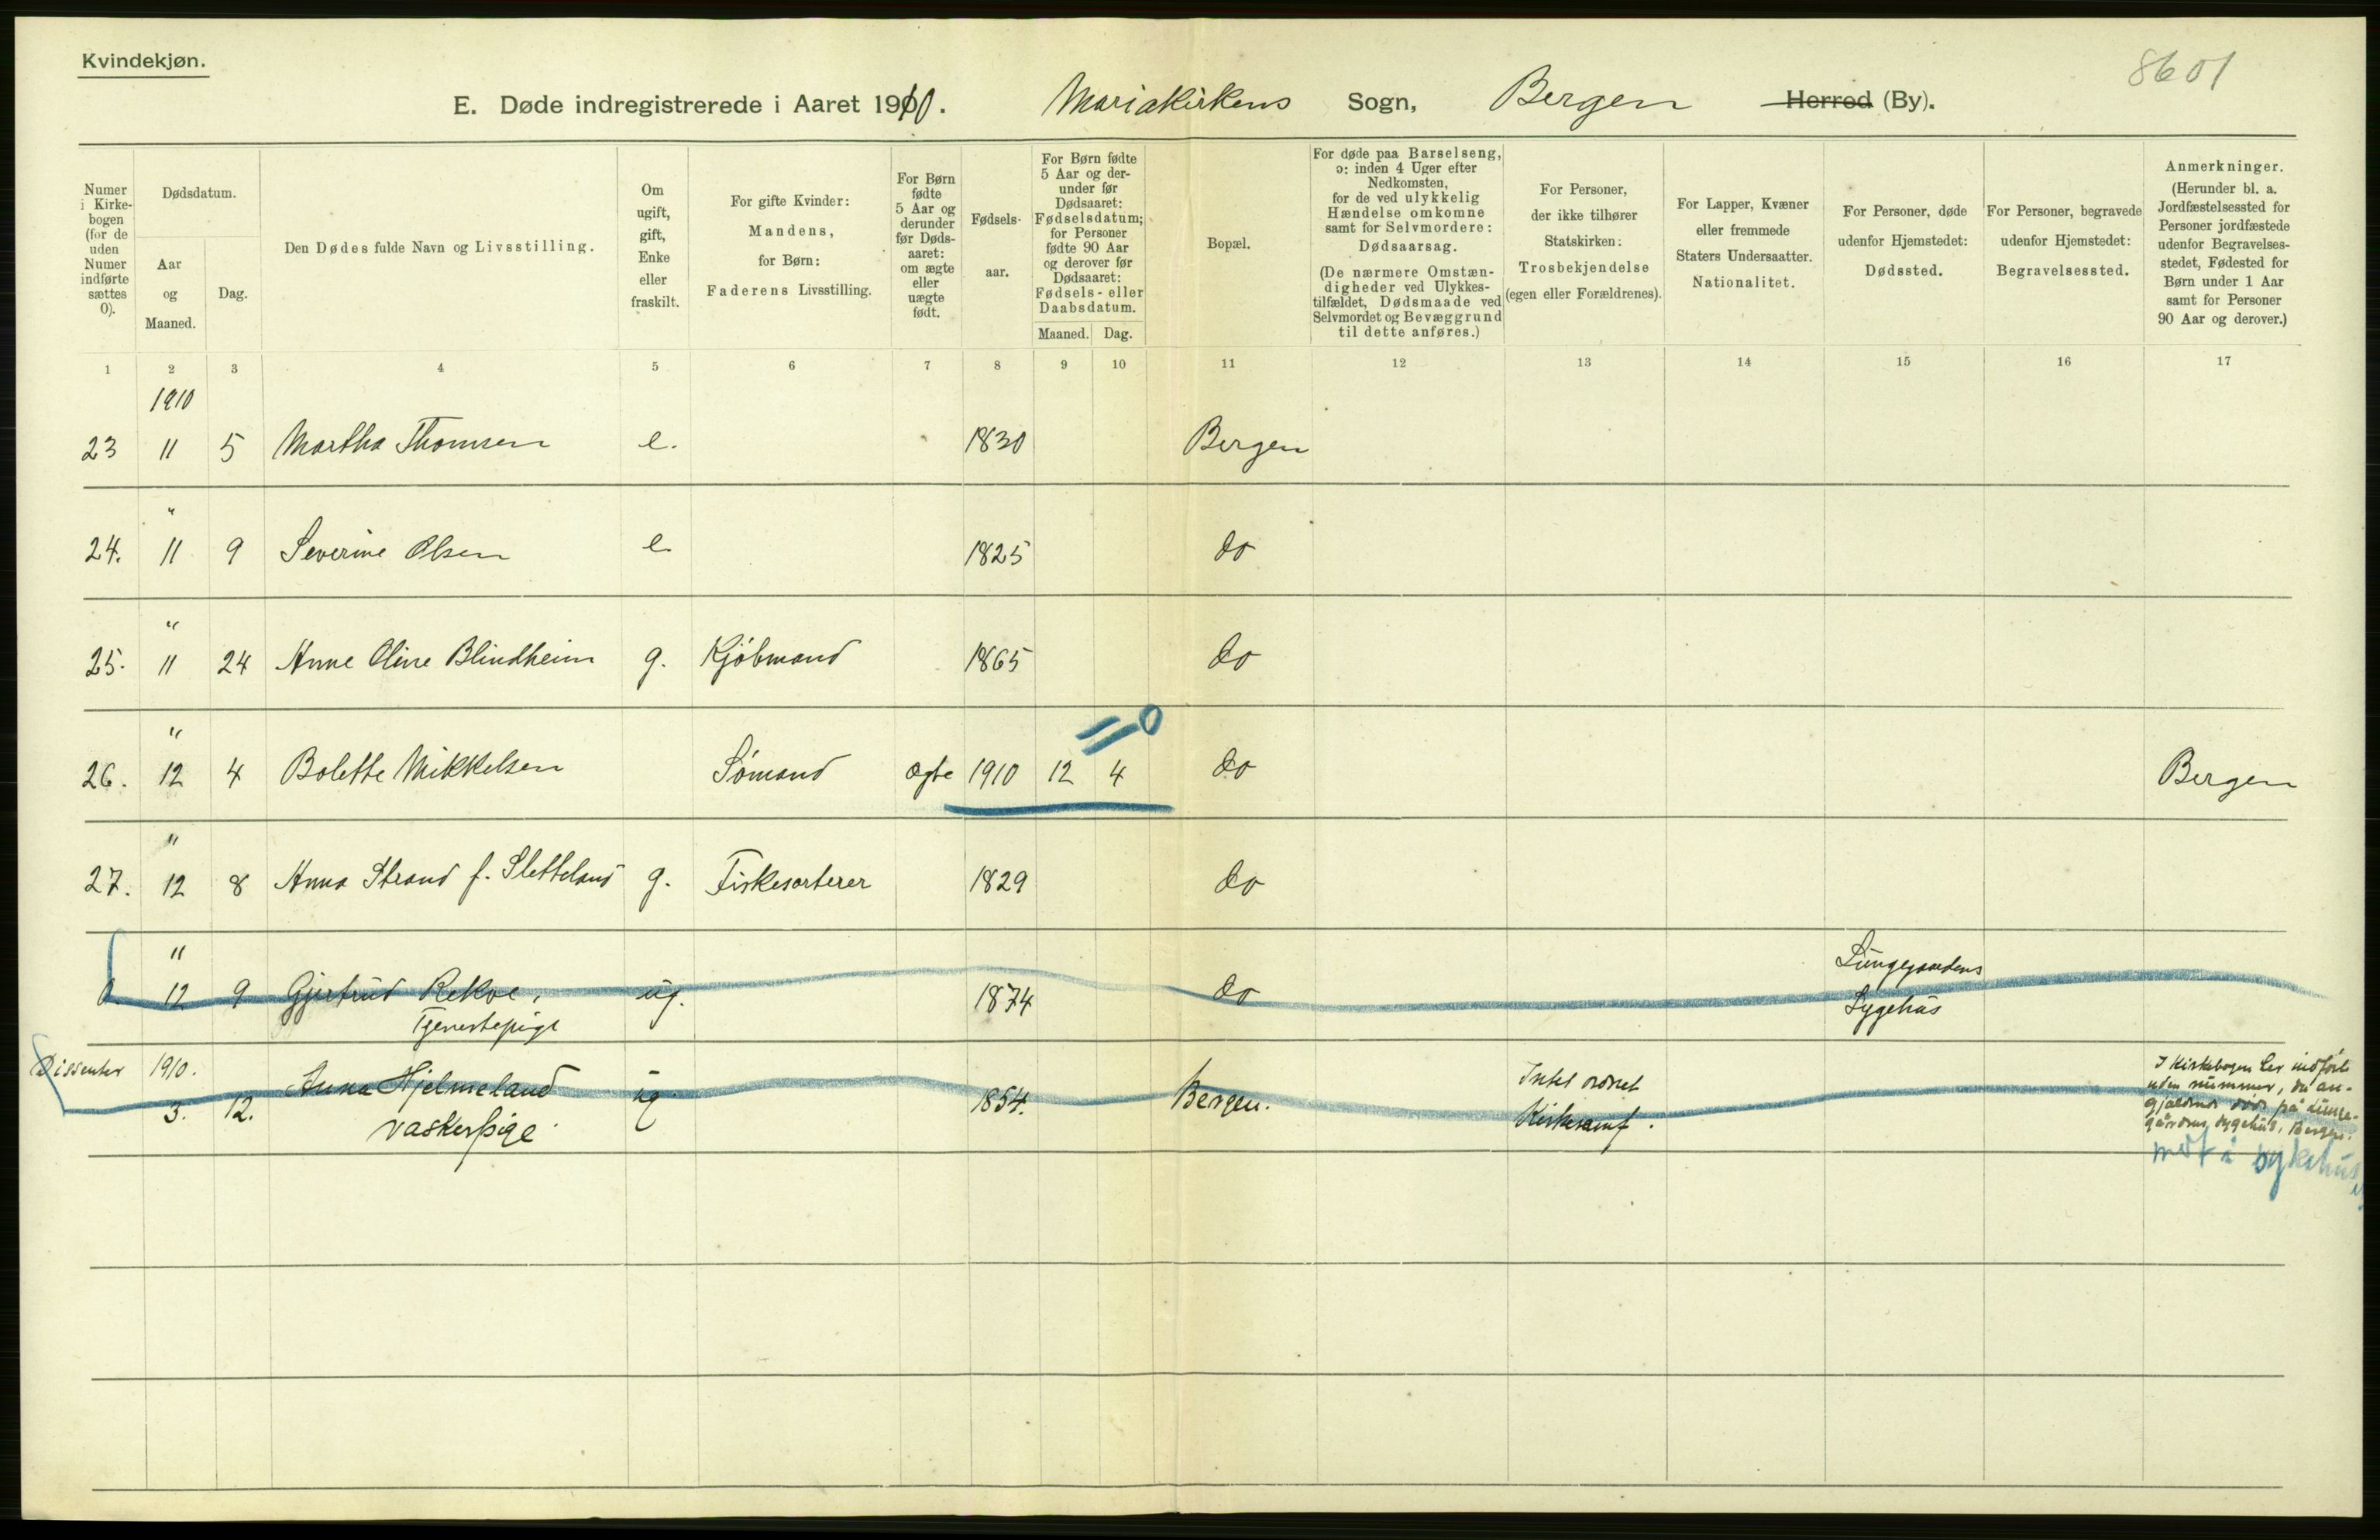 Kvindekjøn.
8601
E. Døde indregistrerede i Aaret 1910. Mariakirkens Sogn, Bergen Herred (By).
Numer i Kirkebogen (for de uden Numer indførte sættes 0).
Dødsdatum.
Aar og Maaned.
Dag.
Den Dødes fulde Navn og Livsstilling.
Om ugift, gift, Enke eller fraskilt.
For gifte Kvinder: Mandens, for Børn: Faderens Livsstilling.
For Børn fødte 5 Aar og derunder før Dødsaaret: om ægte eller uægte født.
Fødselsaar.
For Børn fødte 5 Aar og derunder før Dødsaaret: Fødselsdatum; for Personer fødte 90 Aar og derover før Dødsaaret: Fødsels- eller Daabsdatum.
Maaned. Dag.
Bopæl.
For døde paa Barselseng, ɔ: inden 4 Uger efter Nedkomsten, for de ved ulykkelig Hændelse omkomne samt for Selvmordere: Dødsaarsag.
(De nærmere Omstændigheder ved Ulykkestilfældet, Dødsmaade ved Selvmordet og Bevæggrund til dette anføres.)
For Personer, der ikke tilhører Statskirken: Trosbekjendelse (egen eller Forældrenes).
For Lapper, Kvæner eller fremmede Staters Undersaatter. Nationalitet.
For Personer, døde udenfor Hjemstedet: Dødssted.
For Personer, begravede udenfor Hjemstedet: Begravelsessted.
Anmerkninger.
(Herunder bl. a. Jordfæstelsessted for Personer jordfæstede udenfor Begravelsesstedet, Fødested for Børn under 1 Aar samt for Personer 90 Aar og derover.)
1 2 3 4 5 6 7 8 9 10 11 12 13 14 15 16 17
1910
23 11 5 Martha Thomsen e. 1830 Bergen
"
24. 11 9 Severine Olsen e. 1825 do
"
25. 11 24 Anne Oline Blindheim g. Kjøbmand 1865 do
"
26. 12 4 Bolette Mikkelsen Sømand ægte 1910 12 4 do Bergen
"
27. 12 8 Anna Strand f. Sletteland g. Fiskesorterer 1829 do
"
0. 12 9 Gjertrud Rekve, ug. 1874 do Lungegaardens
Tjenestepige Sygehus
Dissenter 1910.
3. 12. Anna Hjelmeland ug 1854. Bergen. Intet ordnet
vaskerpige Kirkesamf.
I Kirkebogen ler indført
uden nummer, da an-
gjældende døde på Lunge-
gårdens sygehus, Bergen.